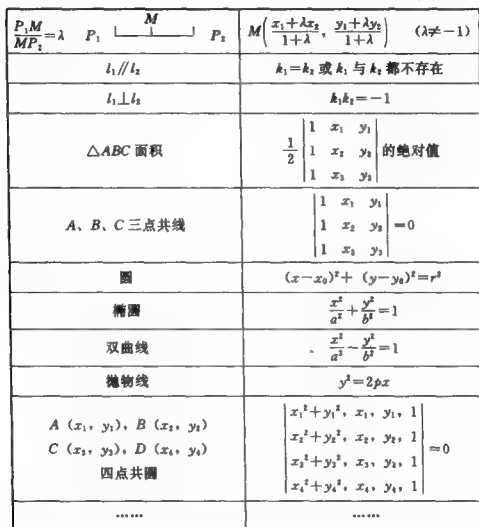 P₁M/MP₂=λ P₁ M P₂ M((x₁+λx₂)/(1+λ), (y₁+λy₂)/(1+λ)) (λ≠−1)
l₁∥l₂ k₁=k₂ 或 k₁ 与 k₂ 都不存在
l₁⊥l₂ k₁k₂=−1
△ABC 面积 1/2 |1 x₁ y₁
1 x₂ y₂
1 x₃ y₃| 的绝对值
A、B、C 三点共线 |1 x₁ y₁
1 x₂ y₂
1 x₃ y₃| =0
圆 (x−x₀)²+ (y−y₀)²=r²
椭圆 x²/a²+y²/b²=1
双曲线 x²/a²−y²/b²=1
抛物线 y²=2px
A (x₁, y₁), B (x₂, y₂)
C (x₃, y₃), D (x₄, y₄)
四点共圆
|x₁²+y₁², x₁, y₁, 1
x₂²+y₂², x₂, y₂, 1
x₃²+y₃², x₃, y₃, 1
x₄²+y₄², x₄, y₄, 1| =0
…… ……